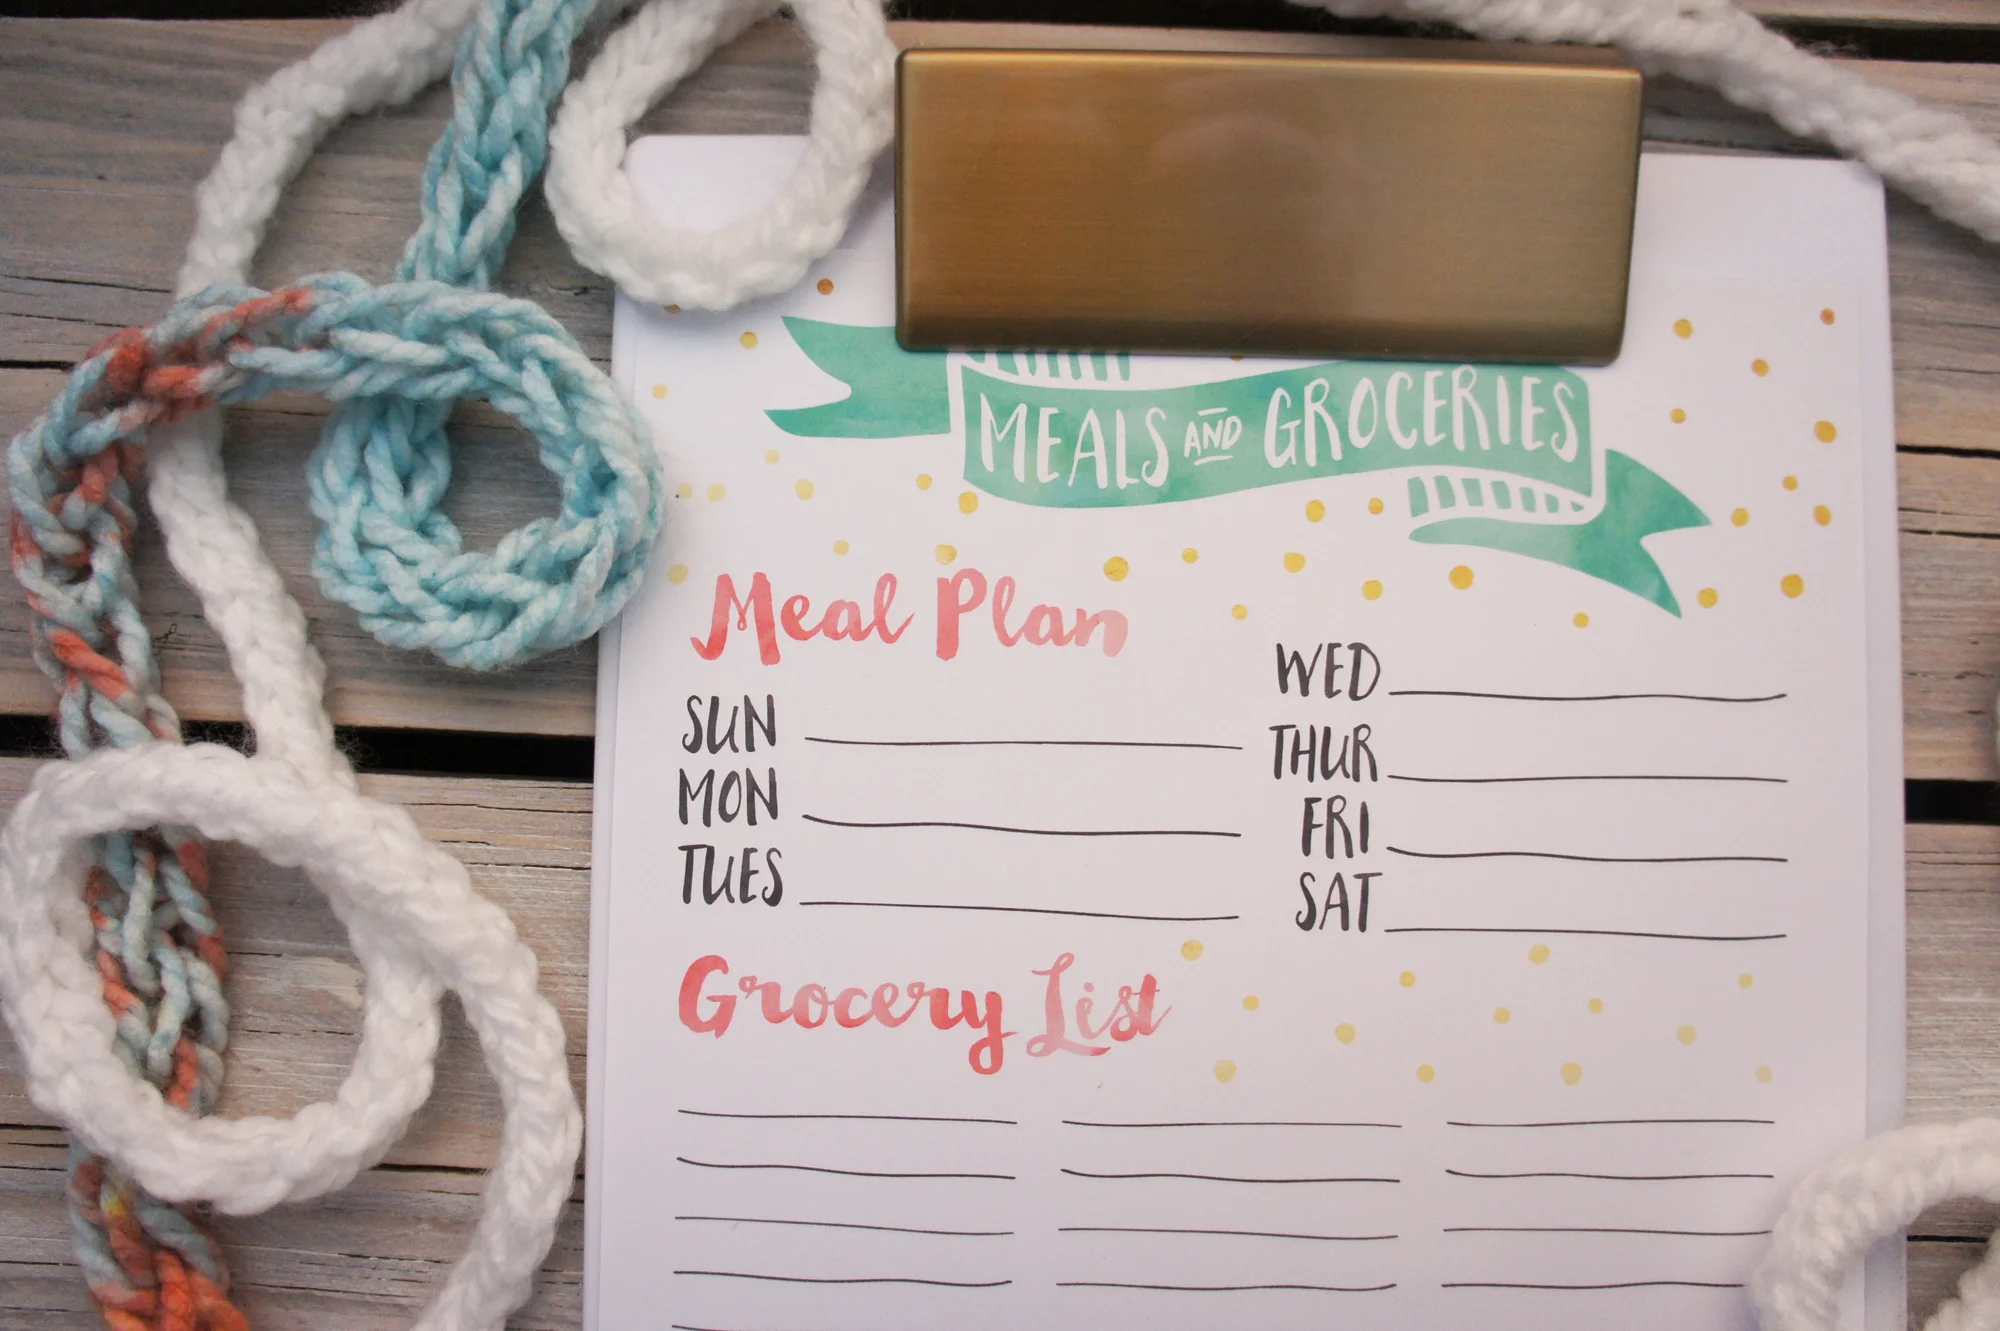 MEALS AND GROCERIES
Meal Plan
SUN
MON
TUES
WED
THUR
FRI
SAT
Grocery List